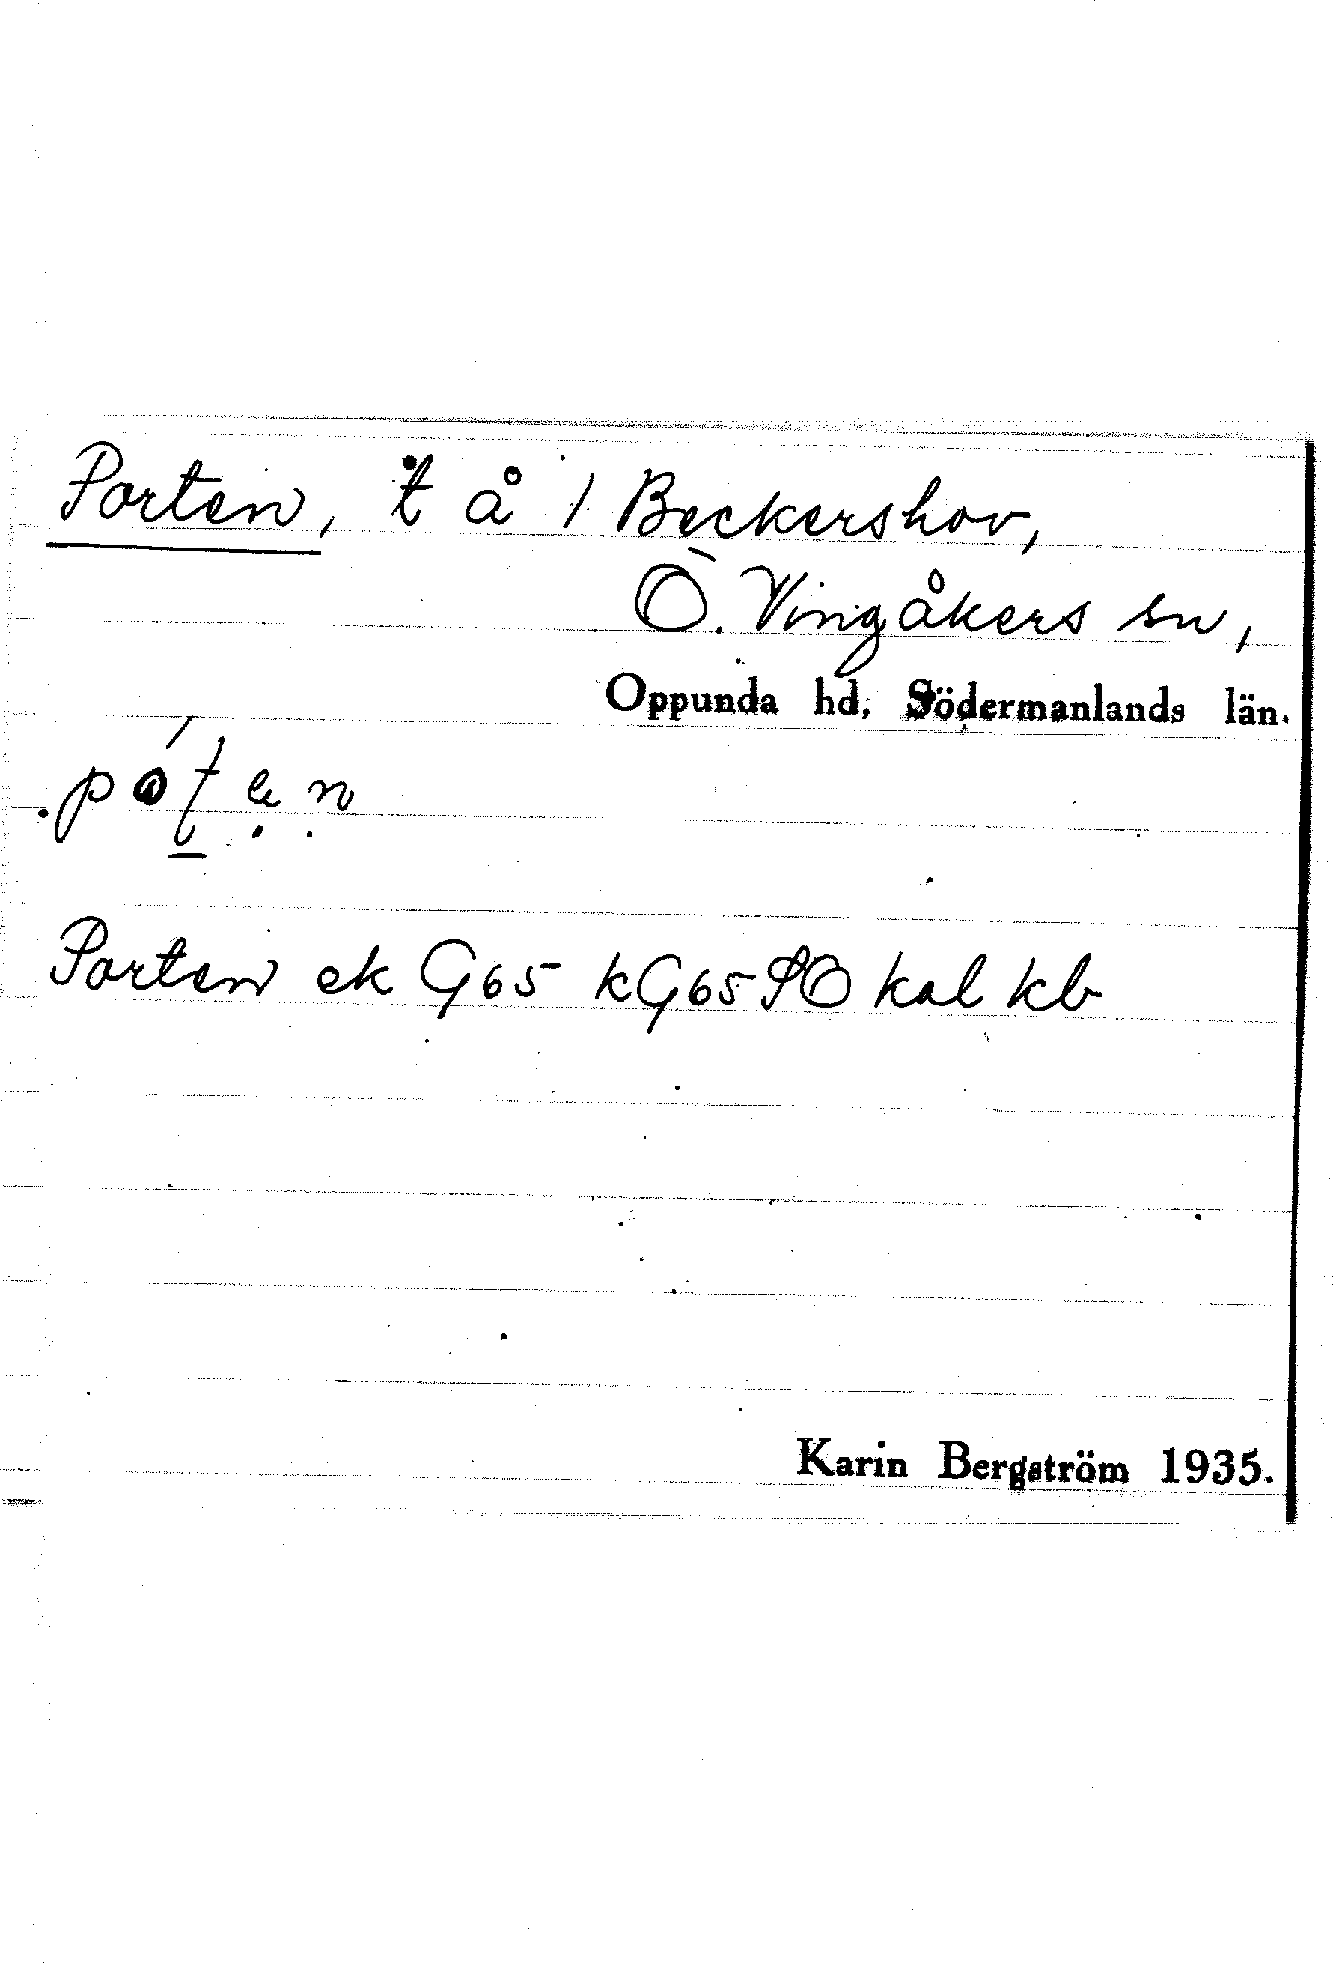 Porten, t å 1 Beckershov,
Ö. Vingåkers sn,
Oppunda hd, Södermanlands län.
Porten ek G65 kG65 SO kal kb
Karin Bergström 1935.